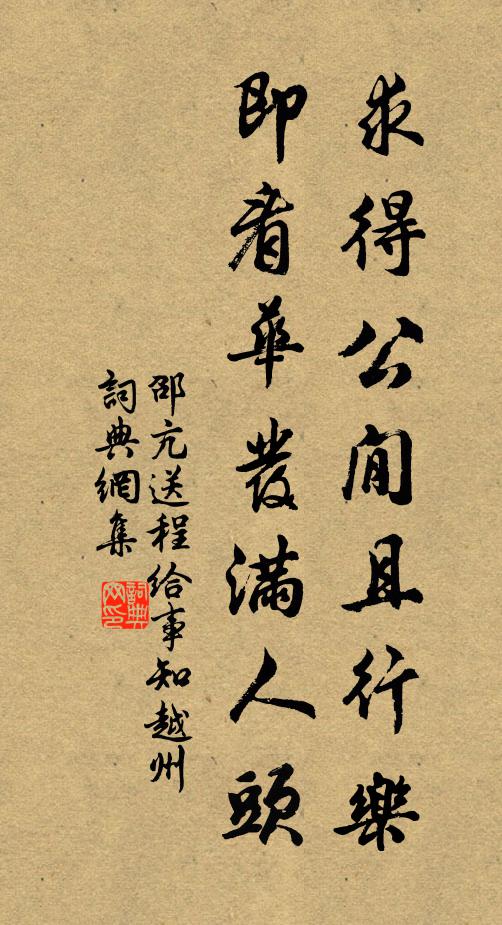 求得公閒且行樂
即看華發滿人頭
邵亢送程給事知越州
詞典網集
詞典網印